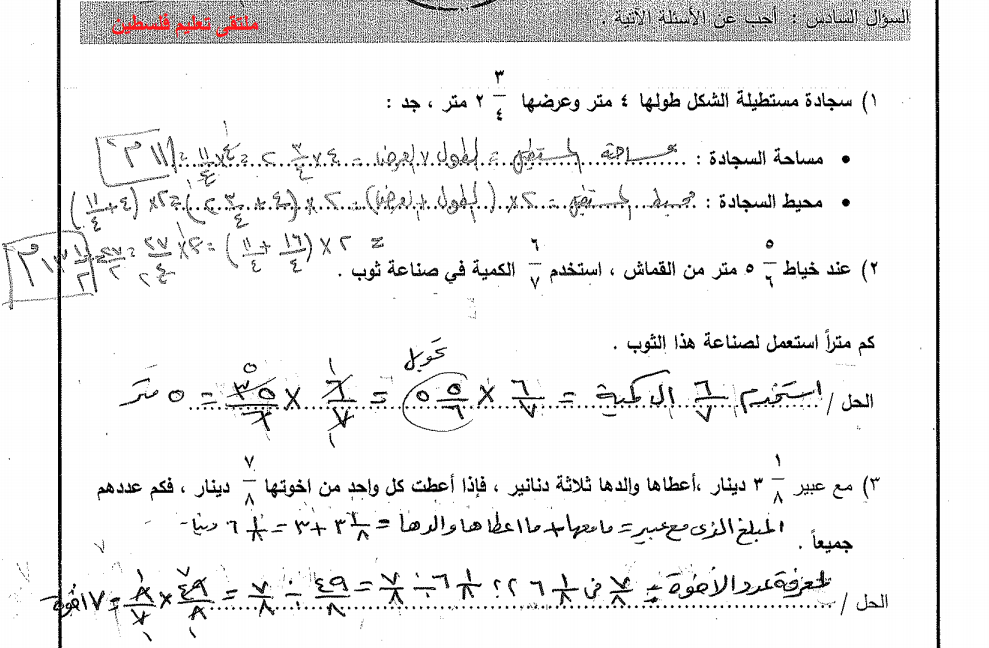 السؤال السادس : أجب عن الأسئلة الآتية .
ملتقى تعليم فلسطين
١) سجادة مستطيلة الشكل طولها ٤ متر وعرضها ٢ ٣/٤ متر ، جد :
• مساحة السجادة : مساحة المستطيل = الطول × العرض = ٤ × ٢ ٣/٤ = ٤ × ١١/٤ = ١١ م٢
• محيط السجادة : محيط المستطيل = ٢ × (الطول + العرض) = ٢ × (٤ + ٢ ٣/٤) = ٢ × (٤ + ١١/٤)
= ٢ × (١٦/٤ + ١١/٤) = ٢ × ٢٧/٤ = ٢٧/٢ = ١٣ ١/٢ م
٢) عند خياط ٥ ٥/٦ متر من القماش ، استخدم ٦/٧ الكمية في صناعة ثوب .
كم متراً استعمل لصناعة هذا الثوب .
تحول
الحل / استخدم ٦/٧ الكمية = ٦/٧ × ٥ ٥/٦ = ٦/٧ × ٣٥/٦ = ٥ متر
٣) مع عبير ٣ ١/٨ دينار ،أعطاها والدها ثلاثة دنانير ، فإذا أعطت كل واحد من اخوتها ٧/٨ دينار ، فكم عددهم
جميعاً . المبلغ الذي مع عبير = ما معها + ما اعطاها والدها = ٣ ١/٨ + ٣ = ٦ ١/٨ دينار
الحل / لمعرفة عدد الأخوة = ٧/٨ في ٦ ١/٨ ؟؟ ٦ ١/٨ ÷ ٧/٨ = ٤٩/٨ ÷ ٧/٨ = ٤٩/٨ × ٨/٧ = ٧ اخوة